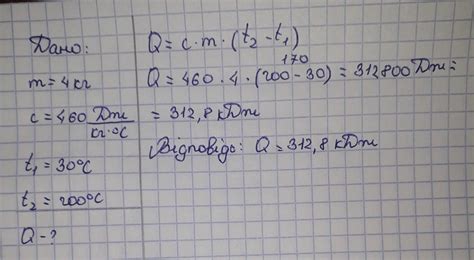 Дано:
m = 4 кг
c = 460 Дж/кг·°C
t₁ = 30°C
t₂ = 200°C
Q - ?
Q = c · m · (t₂ - t₁)
170
Q = 460 · 4 · (200 - 30) = 312800 Дж =
= 312,8 кДж
Відповідь: Q = 312,8 кДж